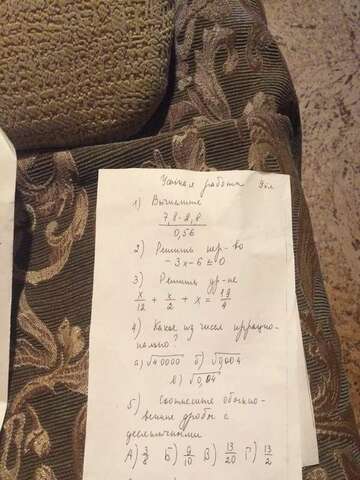 Устная работа 9кл
1) Вычислите
7,8·2,8
0,56
2) Решить нер-во
-3x-6≤0
3) Решить ур-не
x/12 + x/2 + x = 19/4
4) Какое из чисел иррацио-
нально?
а) √40000 б) √0,004
в) √0,04
5) Соотнесите обыкно-
венные дроби с
десятичными
А) 3/8 Б) 9/10 В) 13/20 Г) 13/2